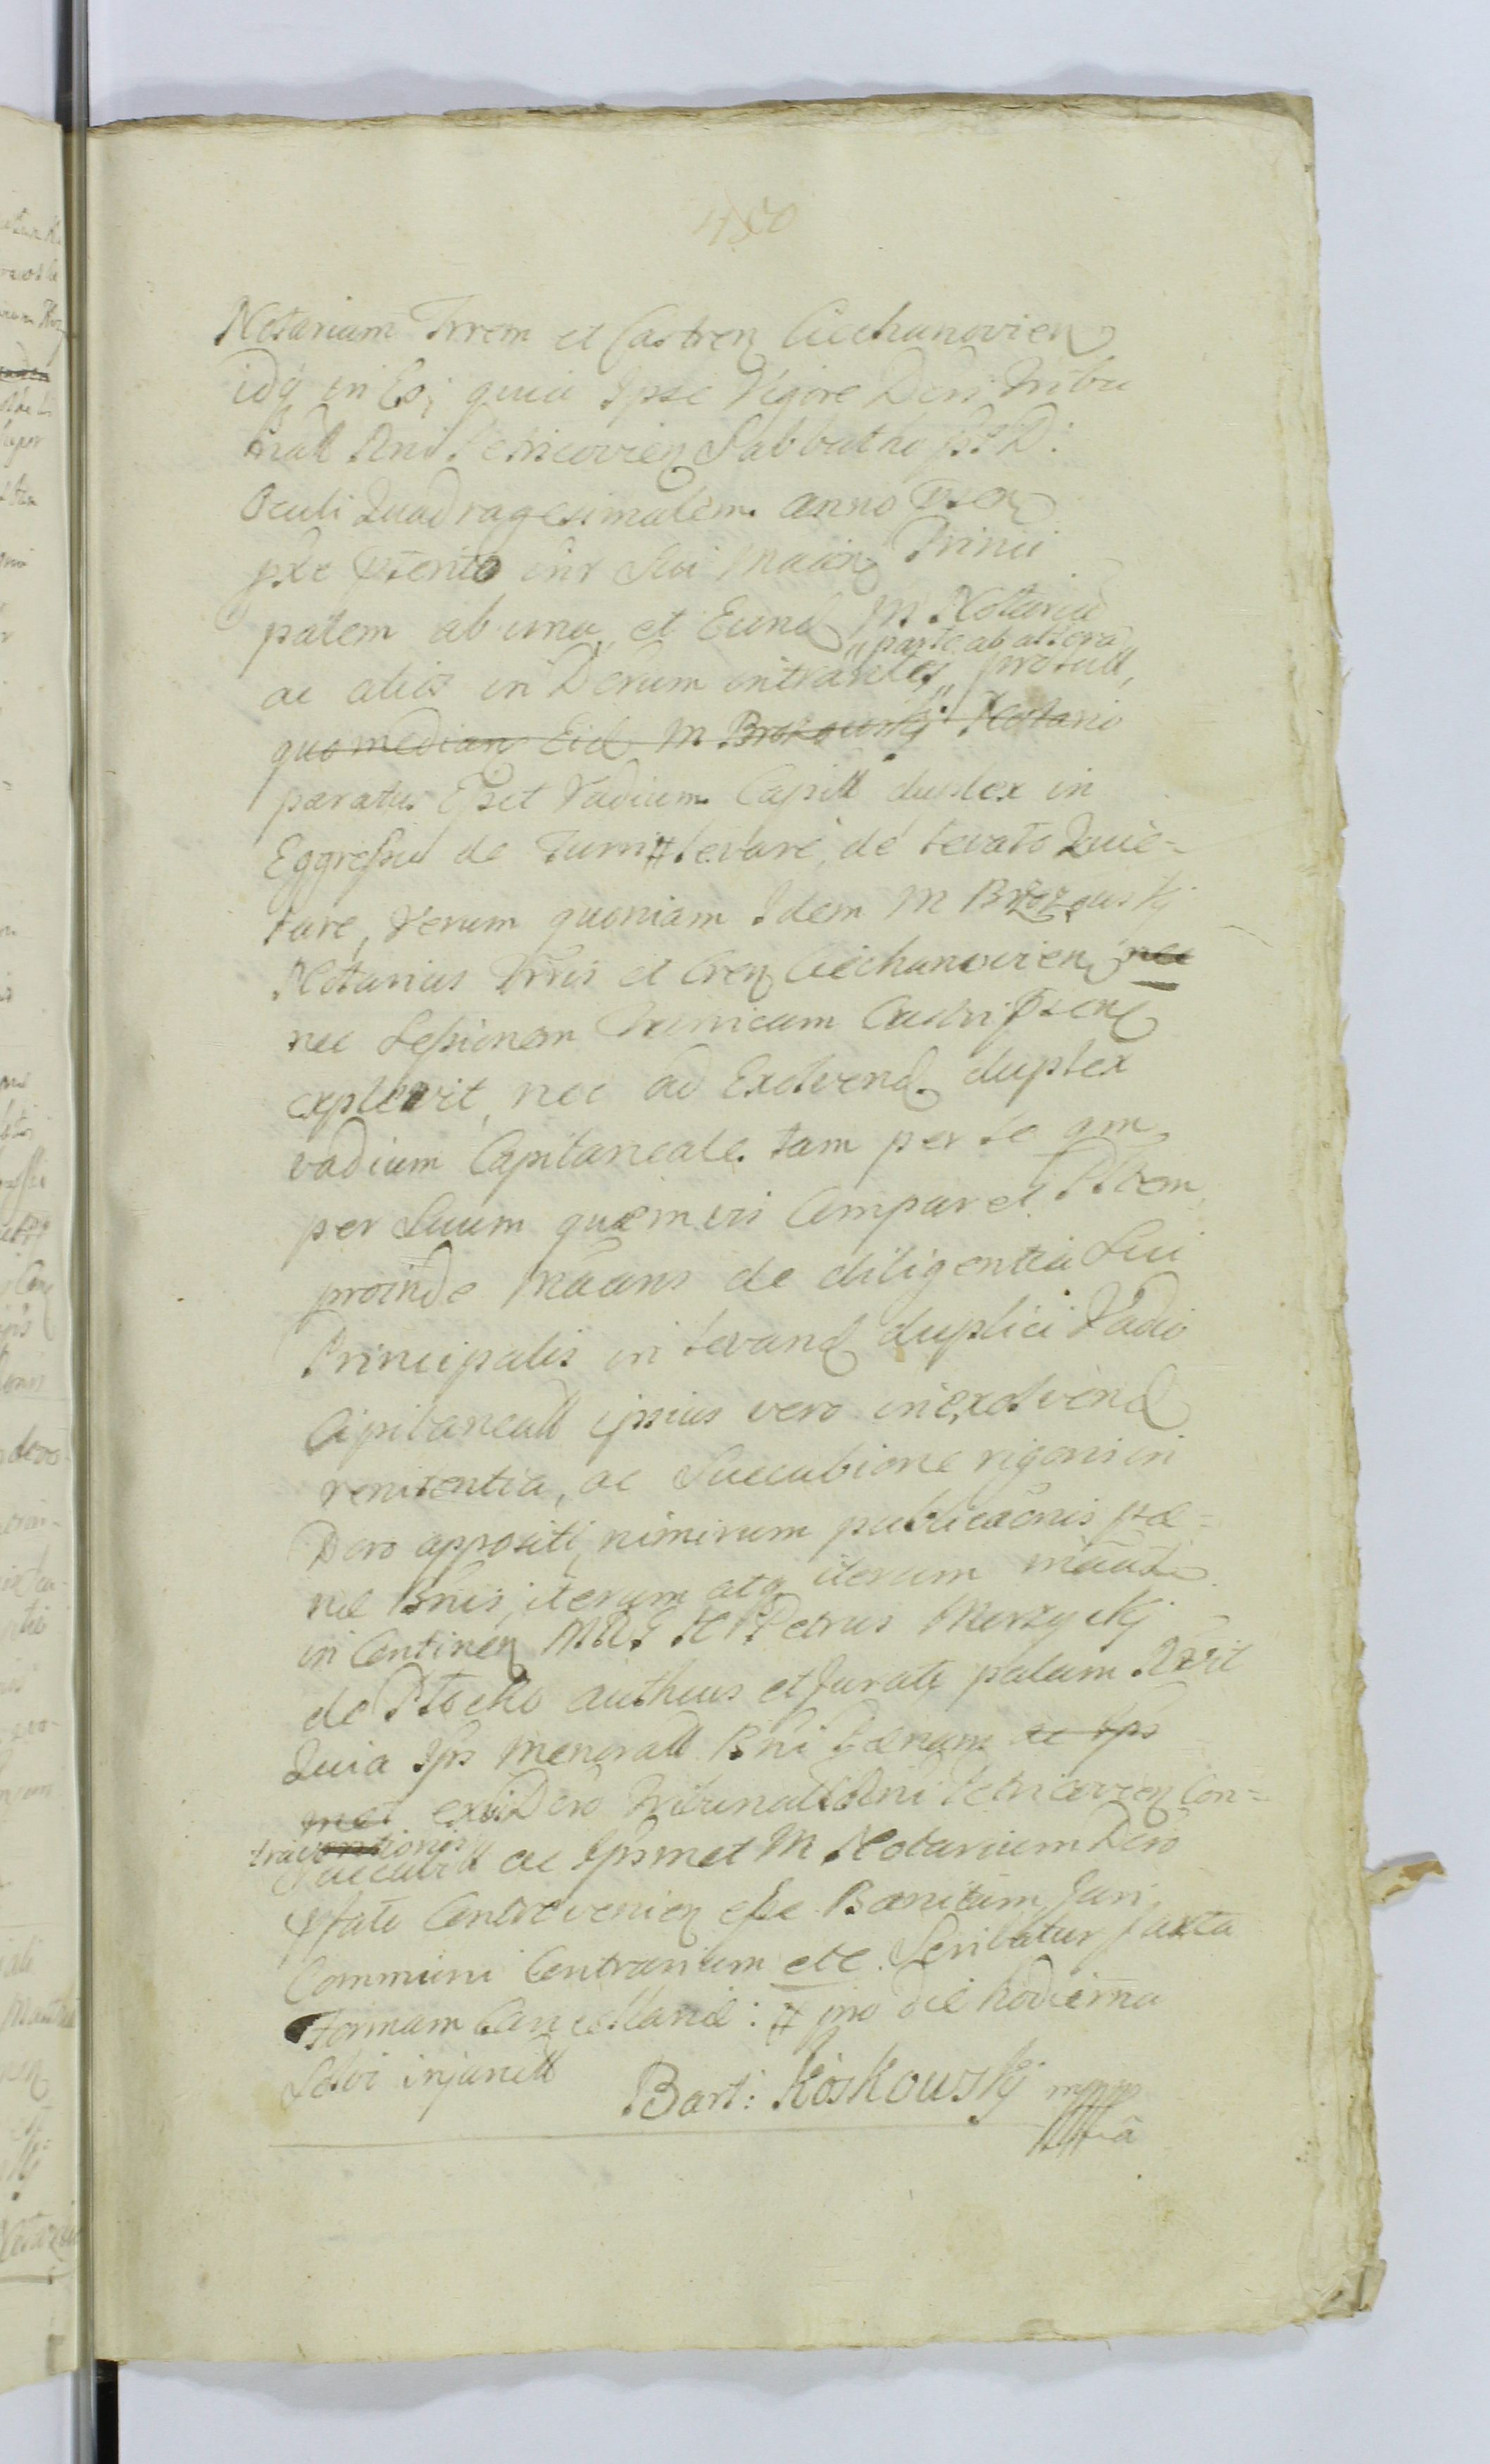 450
Notarium Trrem et Castren Ciechanovien
idq in Eo, quia Ipse Vigore Dcri Tribu
nall Rni Petricovien Sabbatho pt D:
Oculi Quadragesimalem anno Psen
pte ptento inr Sui Maan Princi
palem ab una, et Eund M Notariu
parte ab altera
ac alios in Dcrum intrantes, prolati,
quo median Eid M Brzozowskj Notario
paratus Esset Vadium Capitl duplex in
Eggressu de Turri levare, de levato Quie=
tare, Verum quoniam Idem M Brzozouskj
Notarius Trris et Cren Ciechanovien nec
nec Sessionem Turricam Castri Psen
explevit, nec ad Exolvend duplex
vadium Capitaneale tam per se qm
per Suum quemvis Comparet Pltem
proinde Maans de diligentia Sui
Principalis in levand duplici Vadio
Capitaneall ipsius vero in exolvend
renitentia, ac Succubione rigoris in
Dcro appositi, nimirum publicaonis pæ=
næ Bnis, iterum atq iterum maate
in Continen MRG H Petrus Murzyckj
de Plocko authcus et Juratq palam Rzit
Quia Ips Menorall Bni Pænam ac Ips
met exvi Dcro Tribunall Rni Petricovien Con=
traventionis
Succubuit ac Ipsmet M Notarium Dcro
Pfato Contravenien esse Banitum Juri
Communi Contrarium etc. Scribatur Juxta
Formam Cancellariæ: # pro die hodierna
Solvi injunctt
Bart: Koskouskj mpp